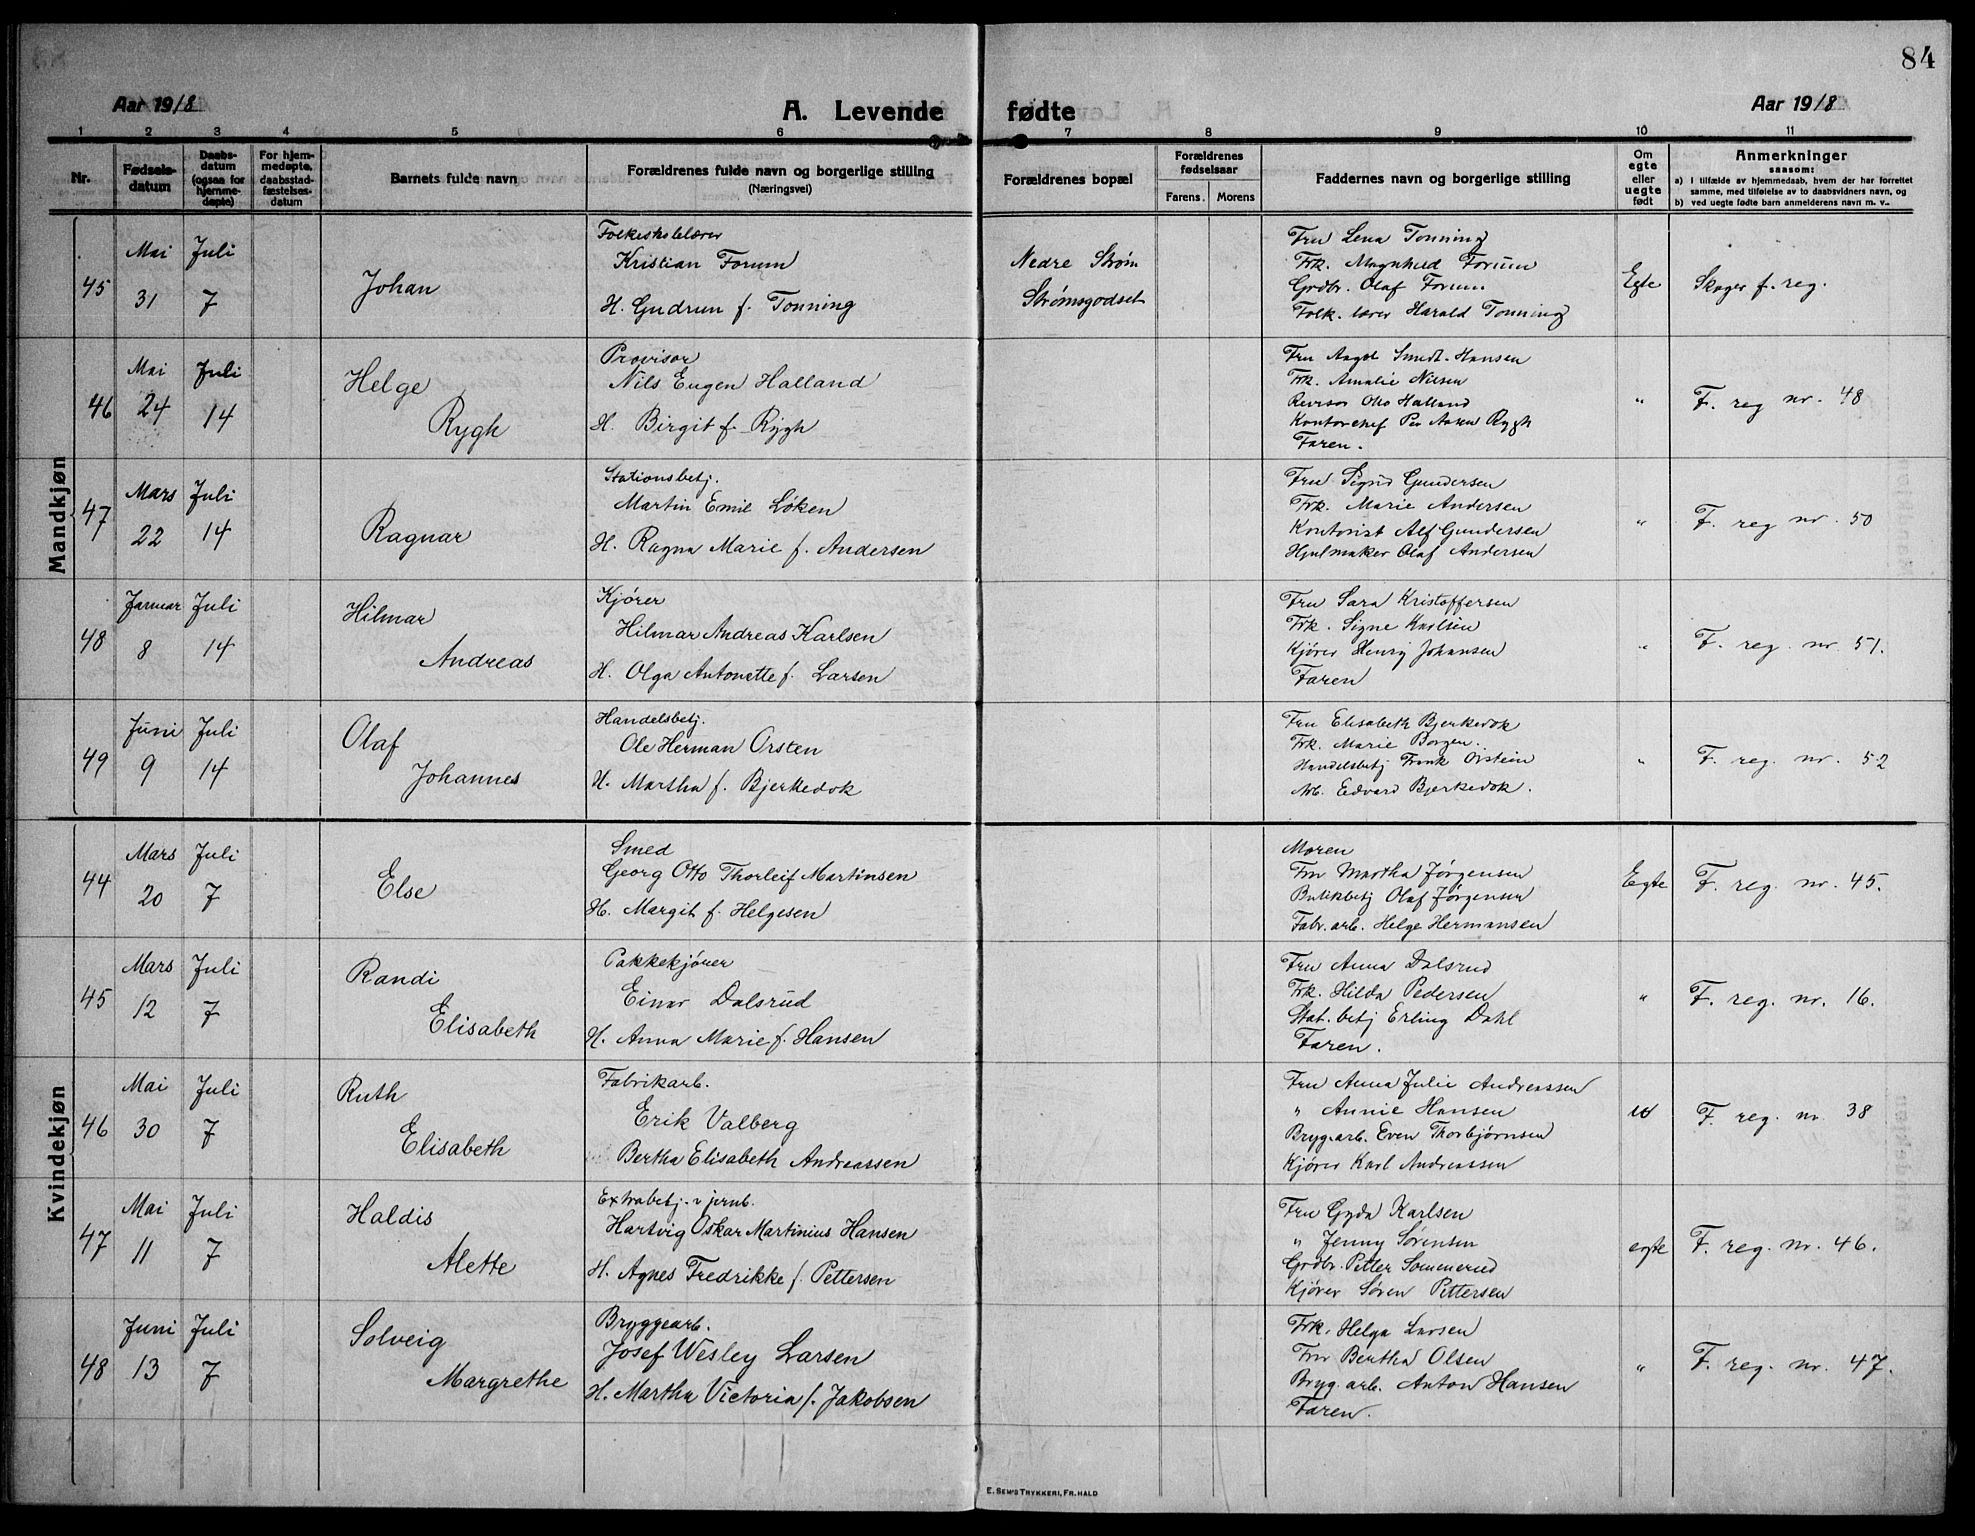 84
Aar 1918
A. Levende fødte
Aar 1918
1 2 3 4 5 6 7 8 9 10 11
Nr.
Fødsels-
datum
Daabs-
datum
(ogsaa for
hjemme-
døpte)
For hjem-
medøpte,
daabsstad-
fæstelses-
datum
Barnets fulde navn
Forældrenes fulde navn og borgerlige stilling
(Næringsvei)
Forældrenes bopæl
Forældrenes
fødselsaar
Farens. Morens
Faddernes navn og borgerlige stilling
Om
egte
eller
uegte
født
Anmerkninger
saasom:
a) I tilfælde av hjemmedaab, hvem der har forrettet
samme, med tilføielse av to daabsvidners navn, og
b) ved uegte fødte barn anmelderens navn m. v..
Mandkjøn
45
Mai
31
Juli
7
Johan
Folkeskolelærer
Kristian Forum
H. Gudrun f. Tonning
Nedre Strøm
Strømsgodset
Fru Lena Tonning
Frk. Magnhild Forum
Grdbr. Olaf Forum
Folk. lærer Harald Tonning
Egte
Skoger f. reg.
46
Mai
24
Juli
14
Helge
Rygh
Provisor
Nils Eugen Halland
H. Birgit f. Rygh
Fru Aagot Smedt-Hansen
Frk. Amalie Nilsen
Revisor Otto Halland
Kontorchef Per Aasen Rygh
Faren.
"
F. reg nr. 48
47
Mars
22
Juli
14
Ragnar
Stationsbetj.
Martin Emil Løken
H. Ragna Marie f. Andersen
Fru Sigrid Gundersen
Frk. Marie Andersen
Kontorist Alf Gundersen
Hjulmaker Olaf Andersen
"
F. reg nr. 50
48
Januar
8
Juli
14
Hilmar
Andreas
Kjører
Hilmar Andreas Karlsen
H. Olga Antonette f. Larsen
Fru Sara Kristoffersen
Frk. Signe Karlsen
Kjører Henry Johansen
Faren
"
F. reg. nr. 51.
49
Juni
9
Juli
14
Olaf
Johannes
Handelsbetj.
Ole Herman Orsten
H. Martha f. Bjerkedok
Fru Elisabeth Bjerkedok
Frk. Marie Borgen.
Handelsbetj Frank Orstein
Arb. Edvard Bjerkedok.
"
F. reg. nr. 52
Kvindekjøn
44
Mars
20
Juli
7
Else
Smed
Georg Otto Thorleif Martinsen
H. Margit f. Helgesen
Moren
Fru Martha Jørgensen
Butikbetj Olaf Jørgensen
Fabr. arb. Helge Hermansen
Egte
F. reg. nr. 45.
45
Mars
12
Juli
7
Randi
Elisabeth
Pakkekjører
Einar Dalsrud
H. Anna Marie f. Hansen
Fru Anna Dalsrud
Frk. Hilda Pedersen
Stat. betj Erling Dahl
Faren.
"
F. reg. nr. 16.
46
Mai
30
Juli
7
Ruth
Elisabeth
Fabrikarb.
Erik Valberg
Bertha Elisabeth Andreassen
Fru Anna Julie Andreassen
" Annie Hansen
Bryg. arb. Even Thorbjørnsen
Kjører Karl Andreassen
F. reg. nr 38
47
Mai
11
Juli
7
Haldis
Alette
Extrabetj. v jernb.
Hartvig Oskar Martinius Hansen
H. Agnes Fredrikke f. Pettersen
Fru Gyda Karlsen
" Jenny Sørensen
Grdbr. Petter Sommerud
Kjører Søren Pettersen
egte
F. reg. nr. 46.
48
Juni
13
Juli
7
Solveig
Margrethe
Bryggearb.
Josef Wesley Larsen
H. Martha Victoria f. Jakobsen
Frk. Helga Larsen
Fru Bertha Olsen
Bryg. arb. Anton Hansen
Faren.
"
F. reg. nr. 47.
E. SEM'S TRYKKERI, FR.HALD